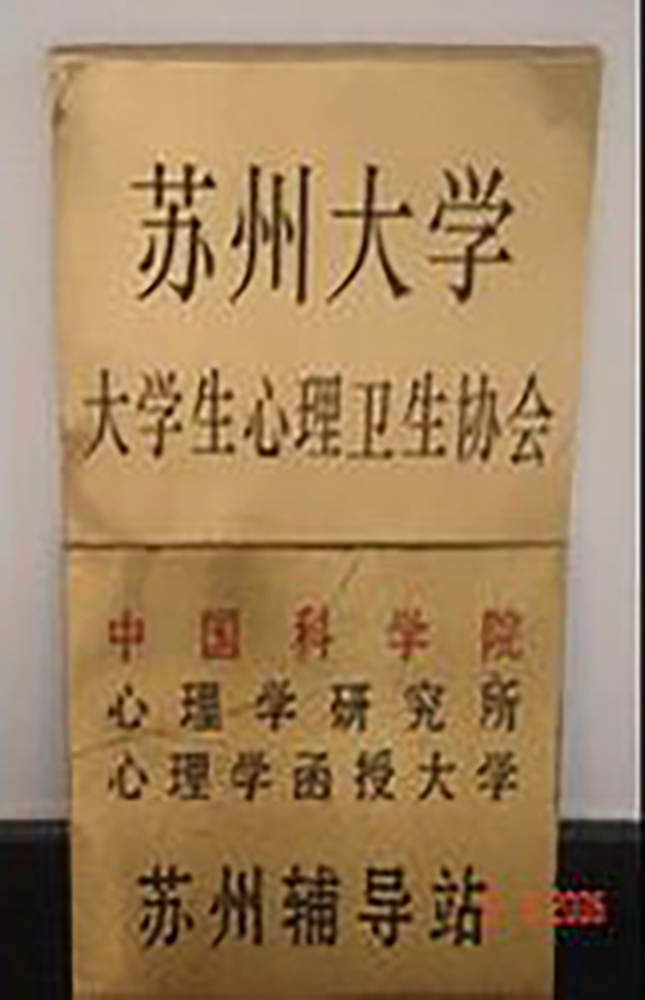 苏州大学
大学生心理卫生协会
中国科学院
心理学研究所
心理学函授大学
苏州辅导站